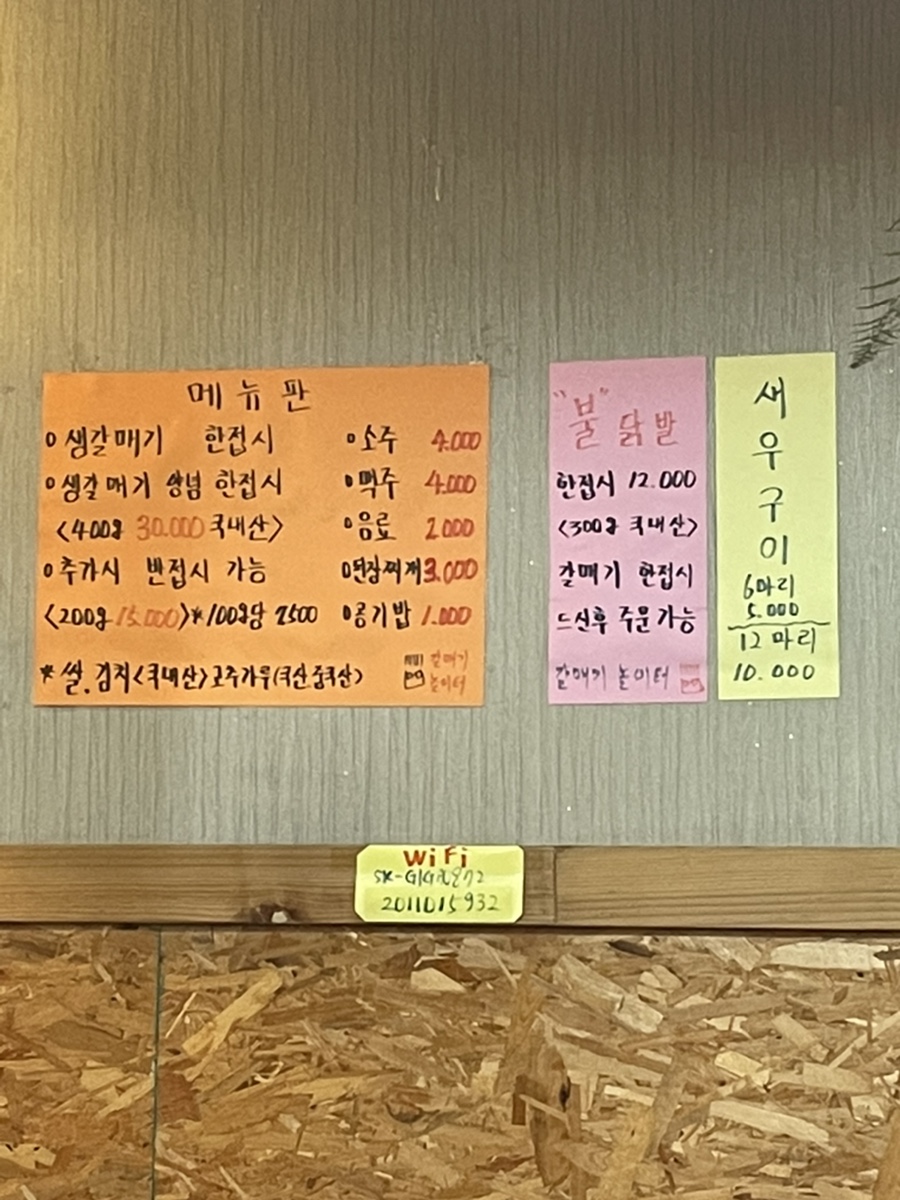 메뉴판
o 생갈매기 한접시
o 생갈매기 양념 한접시
<400g 30.000 국내산>
o 추가시 반접시 가능
<200g 15.000> *100g당 7500
o 소주 4.000
o 맥주 4.000
o 음료 2.000
o 된장찌개 3.000
o 공기밥 1.000
* 쌀.김치<국내산>고추가루(국산,중국산)
갈매기
놀이터
"불" 닭발
한접시 12.000
<300g 국내산>
갈매기 한접시
드신후 주문가능
갈매기 놀이터
새
우
구
이
6마리
5.000
12마리
10.000
WiFi
2011015932